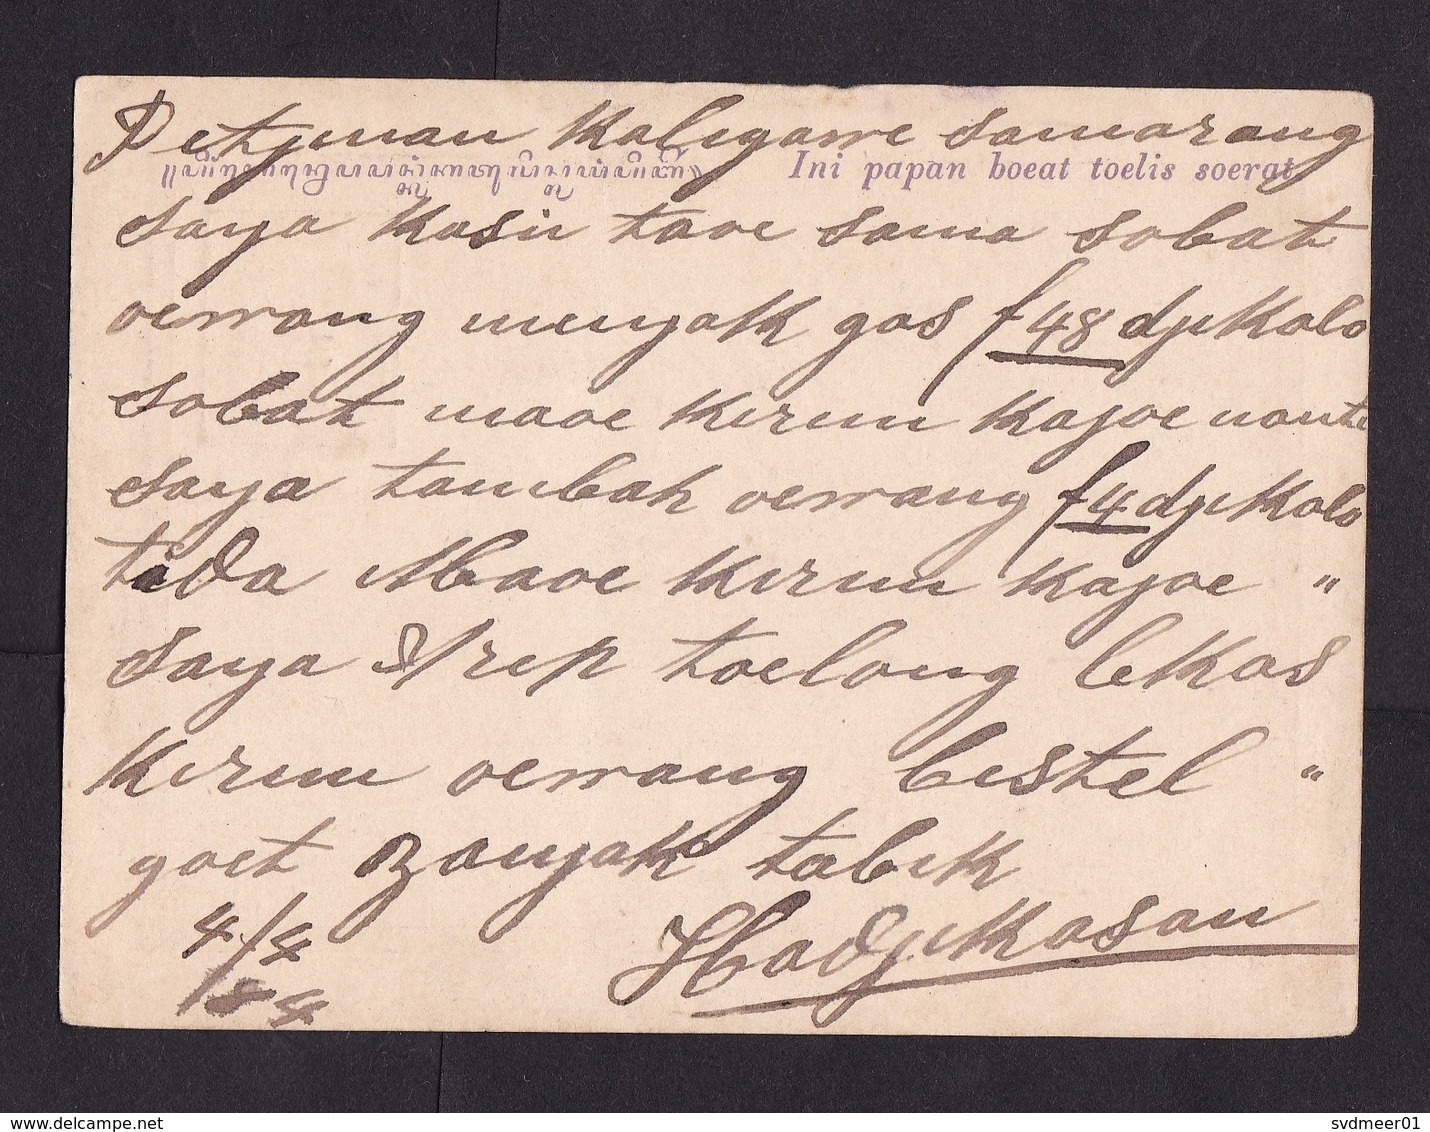 Petjinan Kaligawe Samarang
Ini papan boeat toelis soerat
Saya Kasii taoe sama sobat
oewang minjak gas f 48 djikalo
sobat maoe Kirim Kajoe nanti
saya tambah oewang f 4 djikalo
tida Maoe Kirim Kajoe "
Saya Arep toelong lekas
Kirim oewang bestel "
goet banjak tabik
Hadjikasan
4/4
84
www.delcampe.net
svdmeer01